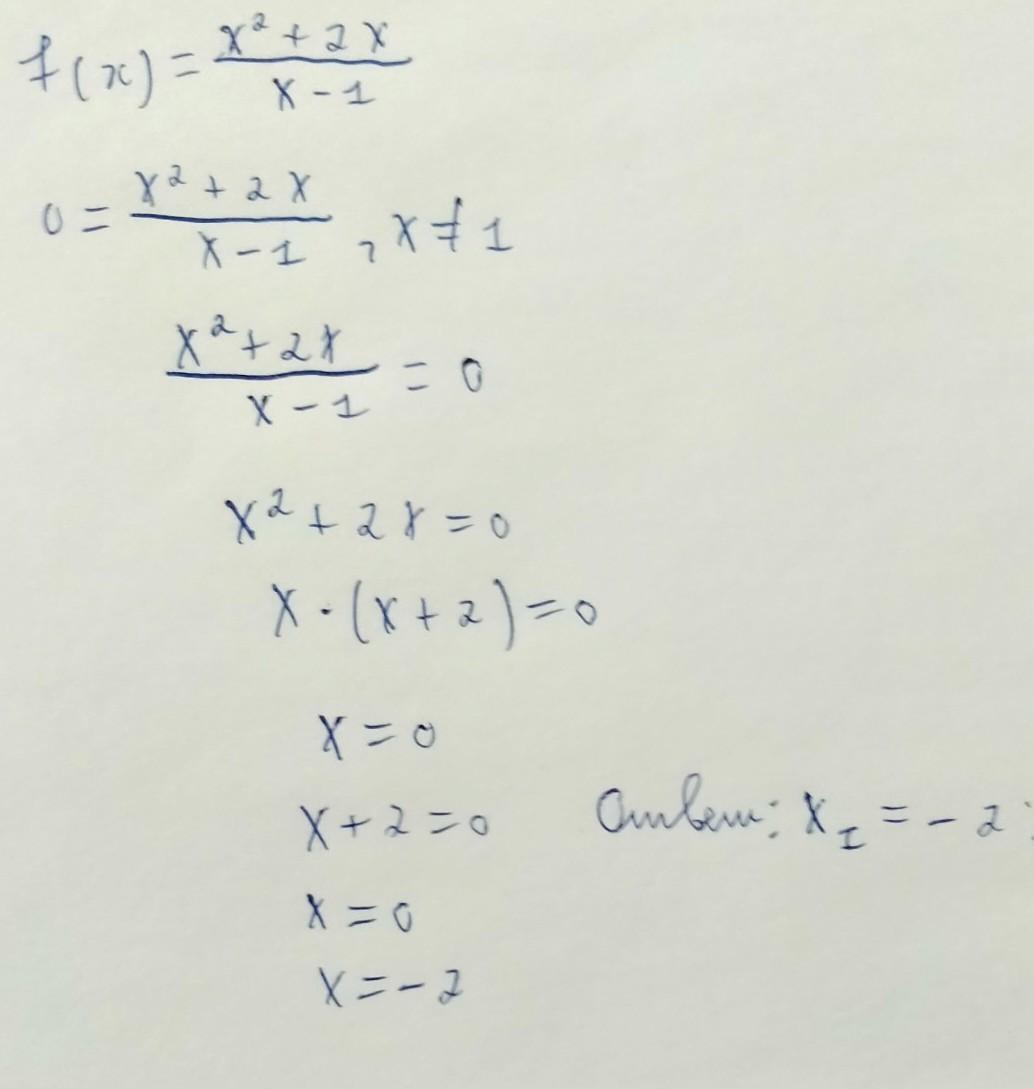 f(x) = (x² + 2x)/(x - 1)
0 = (x² + 2x)/(x - 1), x ≠ 1
(x² + 2x)/(x - 1) = 0
x² + 2x = 0
x · (x + 2) = 0
x = 0
x + 2 = 0
Ответ: x₁ = -2;
x = 0
x = -2